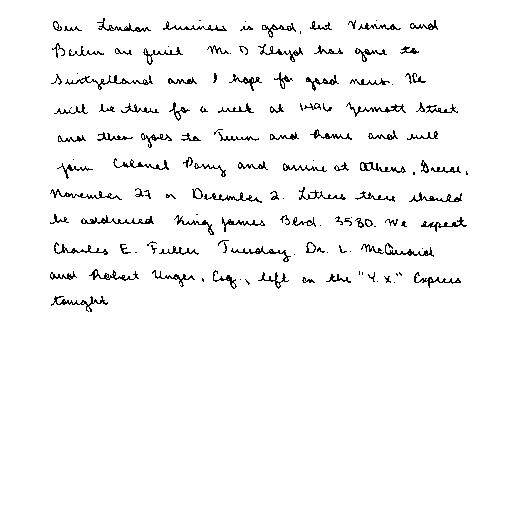 Our London business is good, but Vienna and
Berlin are quiet Mr. D Lloyd has gone to
Switzelland and I hope for good news. He
will be there for a week at 1496 Zermott Street
and then goes to Turin and Rome and will
join Colonel Parry and arrive at Athens, Greece,
November 27 or December 2. Letters there should
be addressed King James Blvd. 3580. We expect
Charles E. Fuller Tuesday. Dr. L. McQuaid
and Robert Unger, Esq., left on the "Y.X." Express
tonight